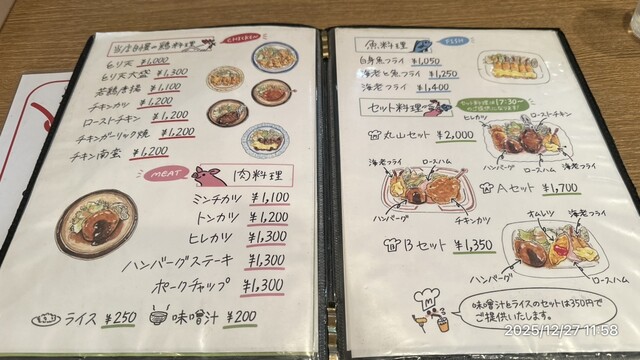 当店自慢の鶏料理 CHICKEN
とり天 ¥1,000
とり天大盛 ¥1,300
若鶏唐揚 ¥1,100
チキンカツ ¥1,200
ローストチキン ¥1,200
チキンガーリック焼 ¥1,200
チキン南蛮 ¥1,200
MEAT 肉料理
ミンチカツ ¥1,100
トンカツ ¥1,200
ヒレカツ ¥1,300
ハンバーグステーキ ¥1,300
ポークチャップ ¥1,300
ライス ¥250 味噌汁 ¥200
魚料理 FISH
白身魚フライ ¥1,050
海老と魚フライ ¥1,250
海老フライ ¥1,400
セット料理
セット料理は17:30〜
のご提供になります!
丸山セット ¥2,000
ヒレカツ ローストチキン
ハンバーグ ロースハム 海老フライ
海老フライ ロースハム
ハンバーグ チキンカツ
Aセット ¥1,700
オムレツ 海老フライ
Bセット ¥1,350
ハンバーグ ロースハム
味噌汁とライスのセットは350円で
ご提供いたします。
2025/12/27 11:58